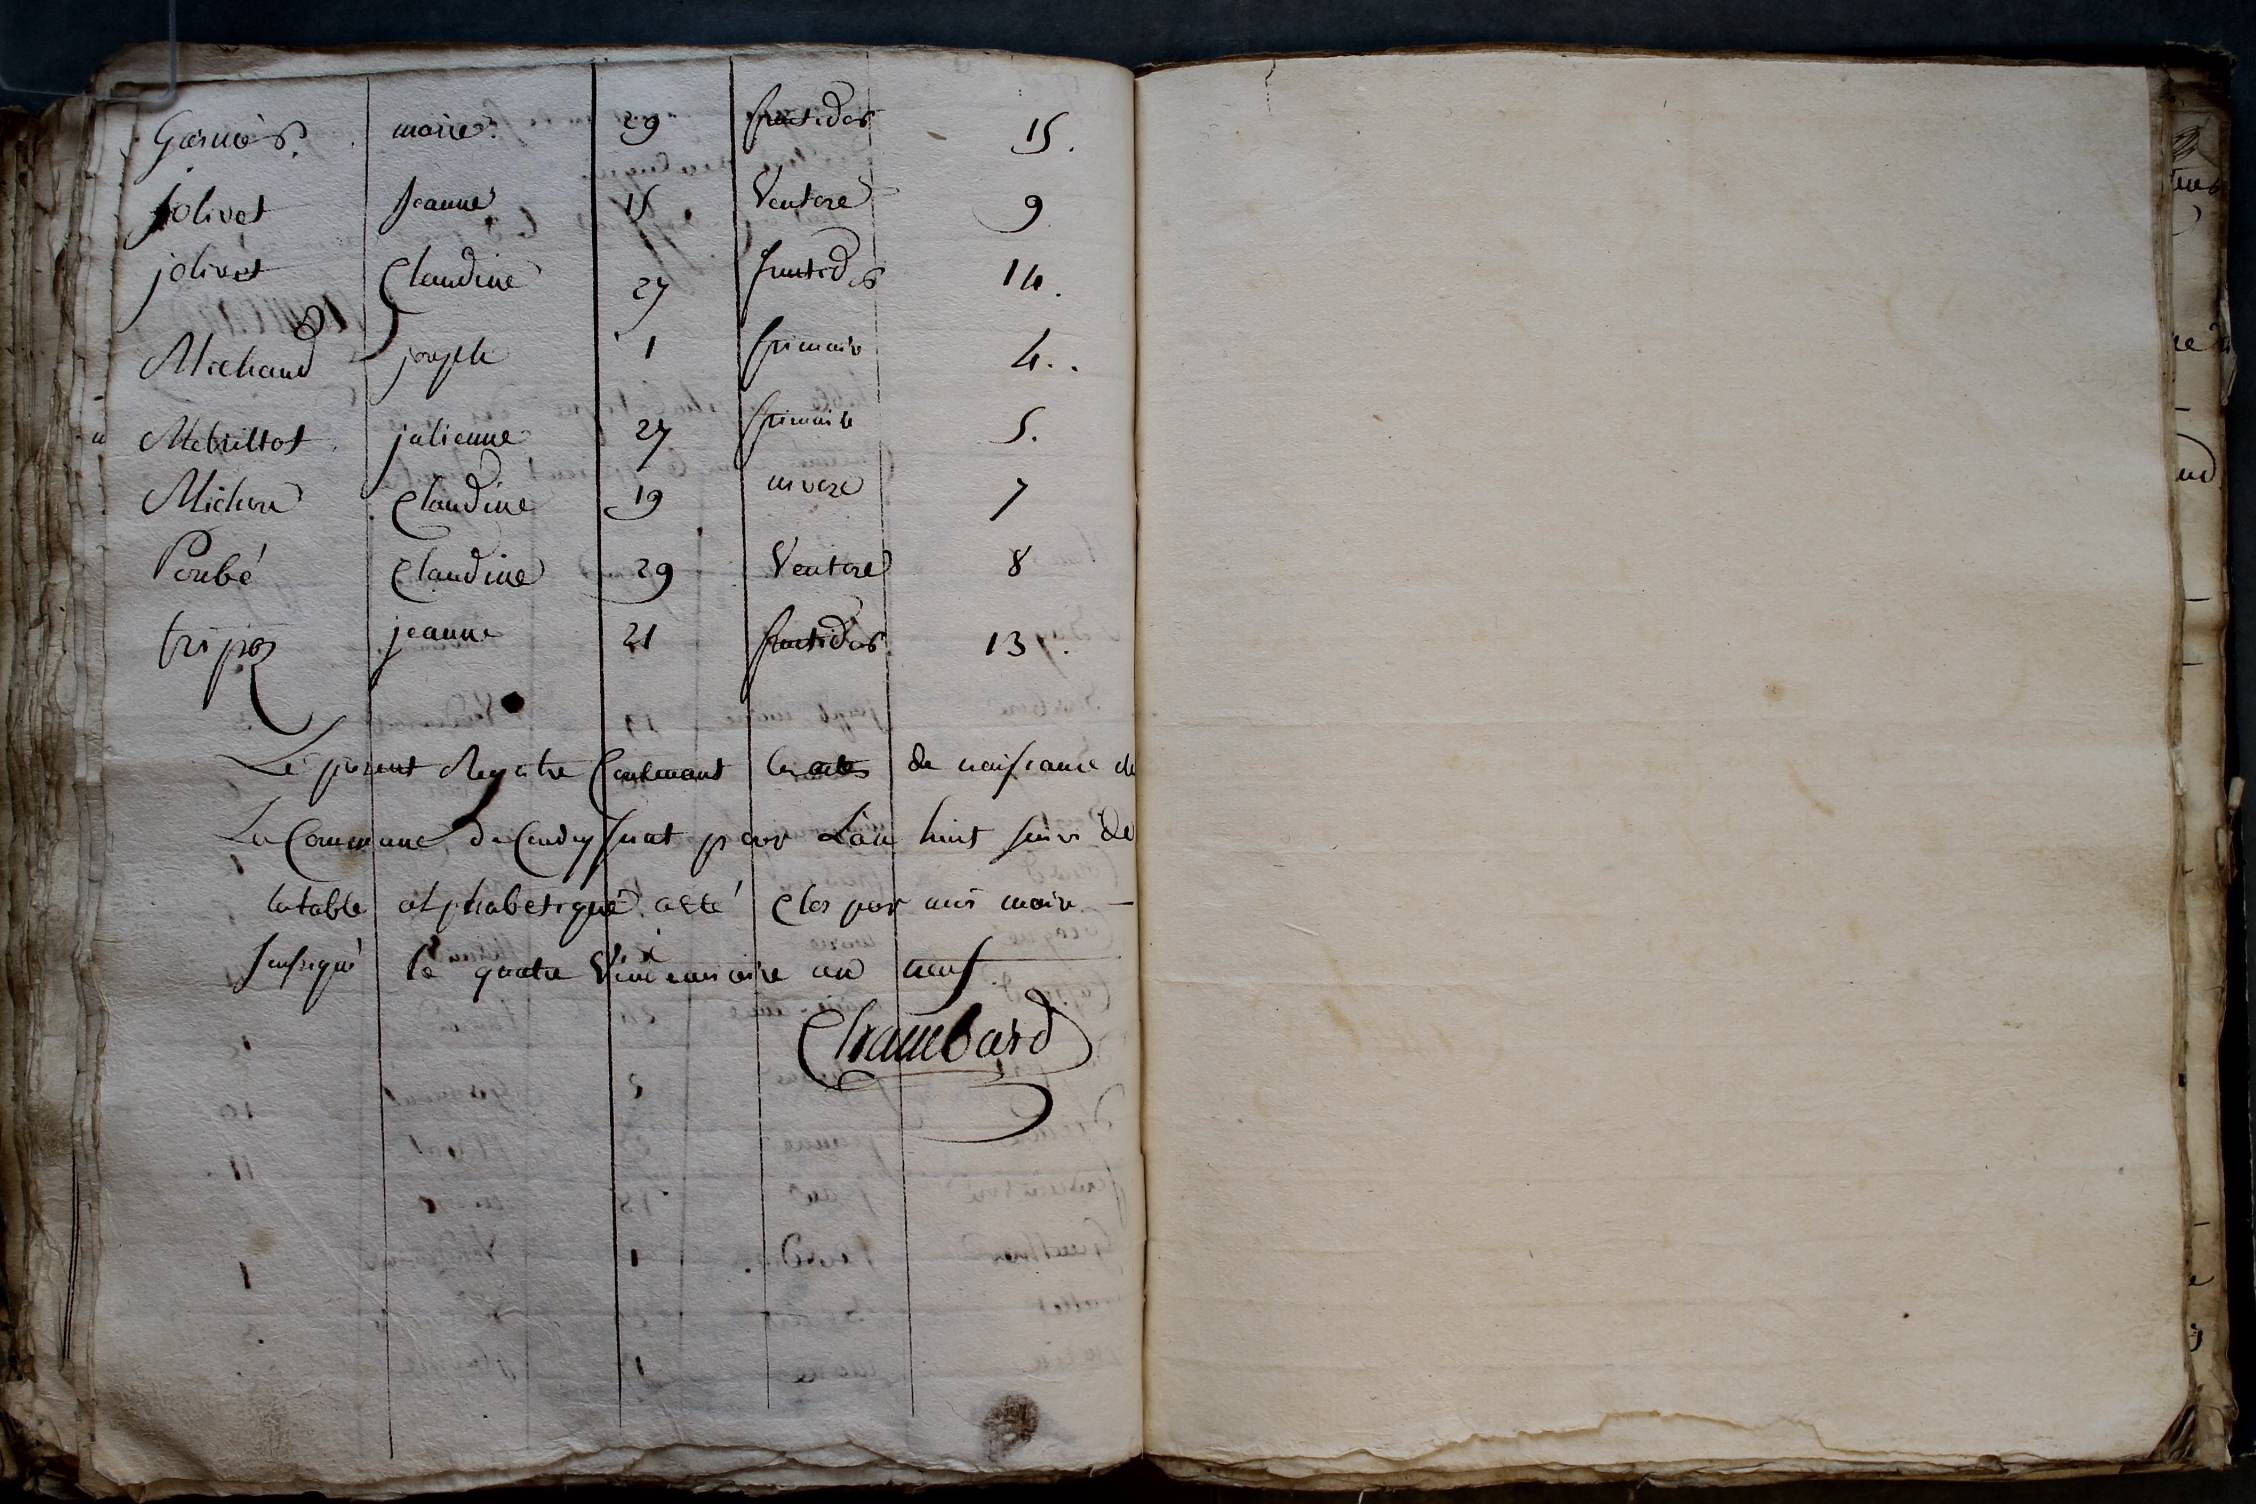 Garnier marie 29 fructidor 15.
jolivet Jeanne 15 Ventose 9
jolivet Claudine 27 fructidor 14.
Michaud joseph 1 frimaire 4..
Mebrillot julienne 27 frimaire 5.
Michon Claudine 19 nivose 7
Poubé Claudine 29 Ventose 8
tripoz jeanne 21 fructidor 13.
Le present Registre Contenant les actes de naissance de
La Commune de Condeyssiat pour L'an huit suivi de
la table alphabetique a eté clos par moi maire
Sousigné le quatre Vendemiaire an neuf
Chambard